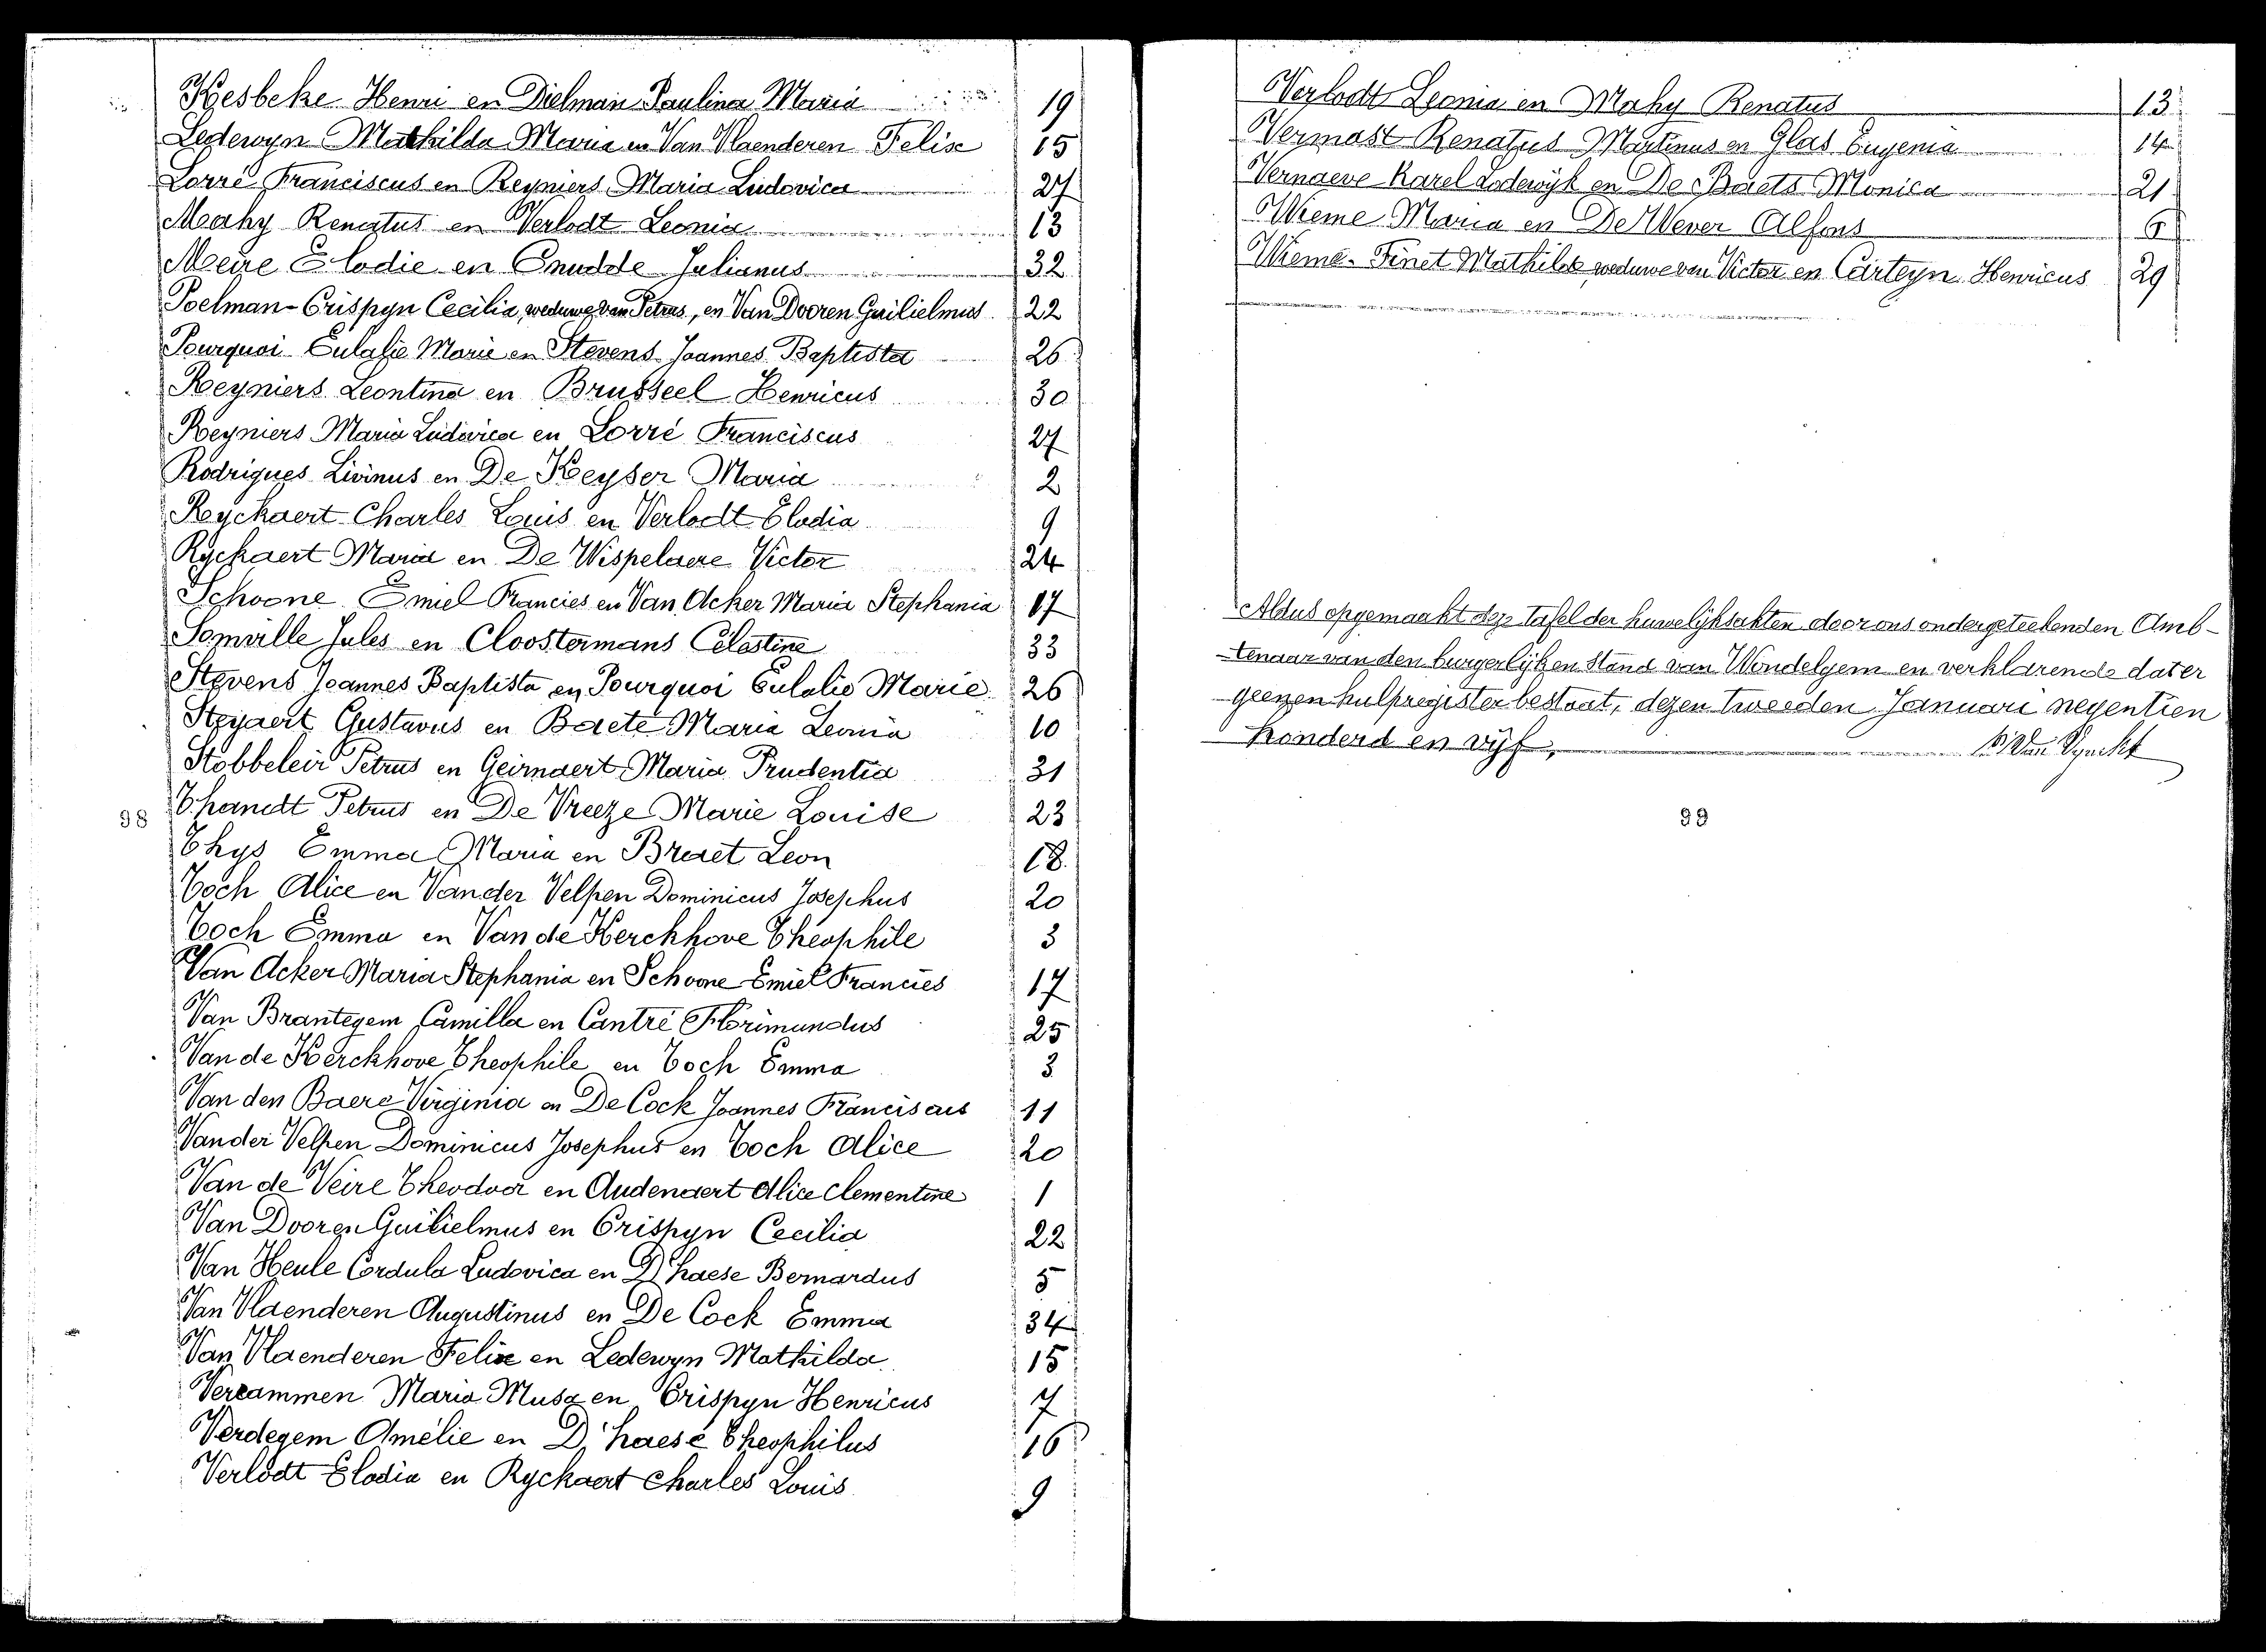 Kesbeke Henri en Dielman Paulina Maria 19
Ledewyn Mathilda Maria en Van Vlaenderen Felix 15
Lorré Franciscus en Reyniers Maria Ludovica 27
Mahy Renatus en Verlodt Leonia 13
Meire Elodie en Cnudde Julianus 32
Poelman-Crispyn Cecilia, weduwe van Petrus, en Van Dooren Guilielmus 22
Pourquoi Eulalie Marie en Stevens Joannes Baptista 26
Reyniers Leontina en Brusseel Henricus 30
Reyniers Maria Ludovica en Lorré Franciscus 27
Rodrigues Livinus en De Keyser Maria 2
Ryckaert Charles Louis en Verlodt Elodia 9
Ryckaert Maria en De Wispelaere Victor 24
Schoone Emiel Francies en Van Acker Maria Stephania 17
Somville Jules en Cloostermans Célestine 33
Stevens Joannes Baptista en Pourquoi Eulalie Marie 26
Steyaert Gustavus en Baete Maria Leonia 10
Stobbeleir Petrus en Geirnaert Maria Prudentia 31
98 Thandt Petrus en De Vreeze Marie Louise 23
Thys Emma Maria en Braet Leon 18
Toch Alice en Vander Velpen Dominicus Josephus 20
Toch Emma en Van de Kerckhove Théophile 3
Van Acker Maria Stephania en Schoone Emiel Francies 17
Van Brantegem Camilla en Cantré Florimundus 25
Van de Kerckhove Theophile en Toch Emma 3
Van den Baere Virginia en De Cock Joannes Franciscus 11
Vander Velpen Dominicus Josephus en Toch Alice 20
Van de Veire Theodoor en Audenaert Alice Clementine 1
Van Dooren Guilielmus en Crispyn Cecilia 22
Van Heule Cordula Ludovica en D'haese Bernardus 5
Van Vlaenderen Augustinus en De Cock Emma 34
Van Vlaenderen Felix en Ledewyn Mathilda 15
Vercammen Maria Musa en Crispyn Henricus 7
Verdegem Amélie en D'haese Theophilus 16
Verlodt Elodia en Ryckaert Charles Louis 9
Verlodt Leonia en Mahy Renatus 13
Vermast Renatus Martinus en Glas Eugenia 14
Vernaeve Karel Lodewyk en De Baets Monica 21
Wieme Maria en De Wever Alfons 6
Wieme-Finet Mathilde weduwe van Victor en Carteyn Henricus 29
Aldus opgemaakt deze Tafel der huwelijksakten door ons ondergeteekenden Amb-
tenaar van den burgerlijken Stand van Wondelgem en verklarende dat er
geenen hulpregister bestaat, dezen tweeden Januari negentien
honderd en vijf,
99